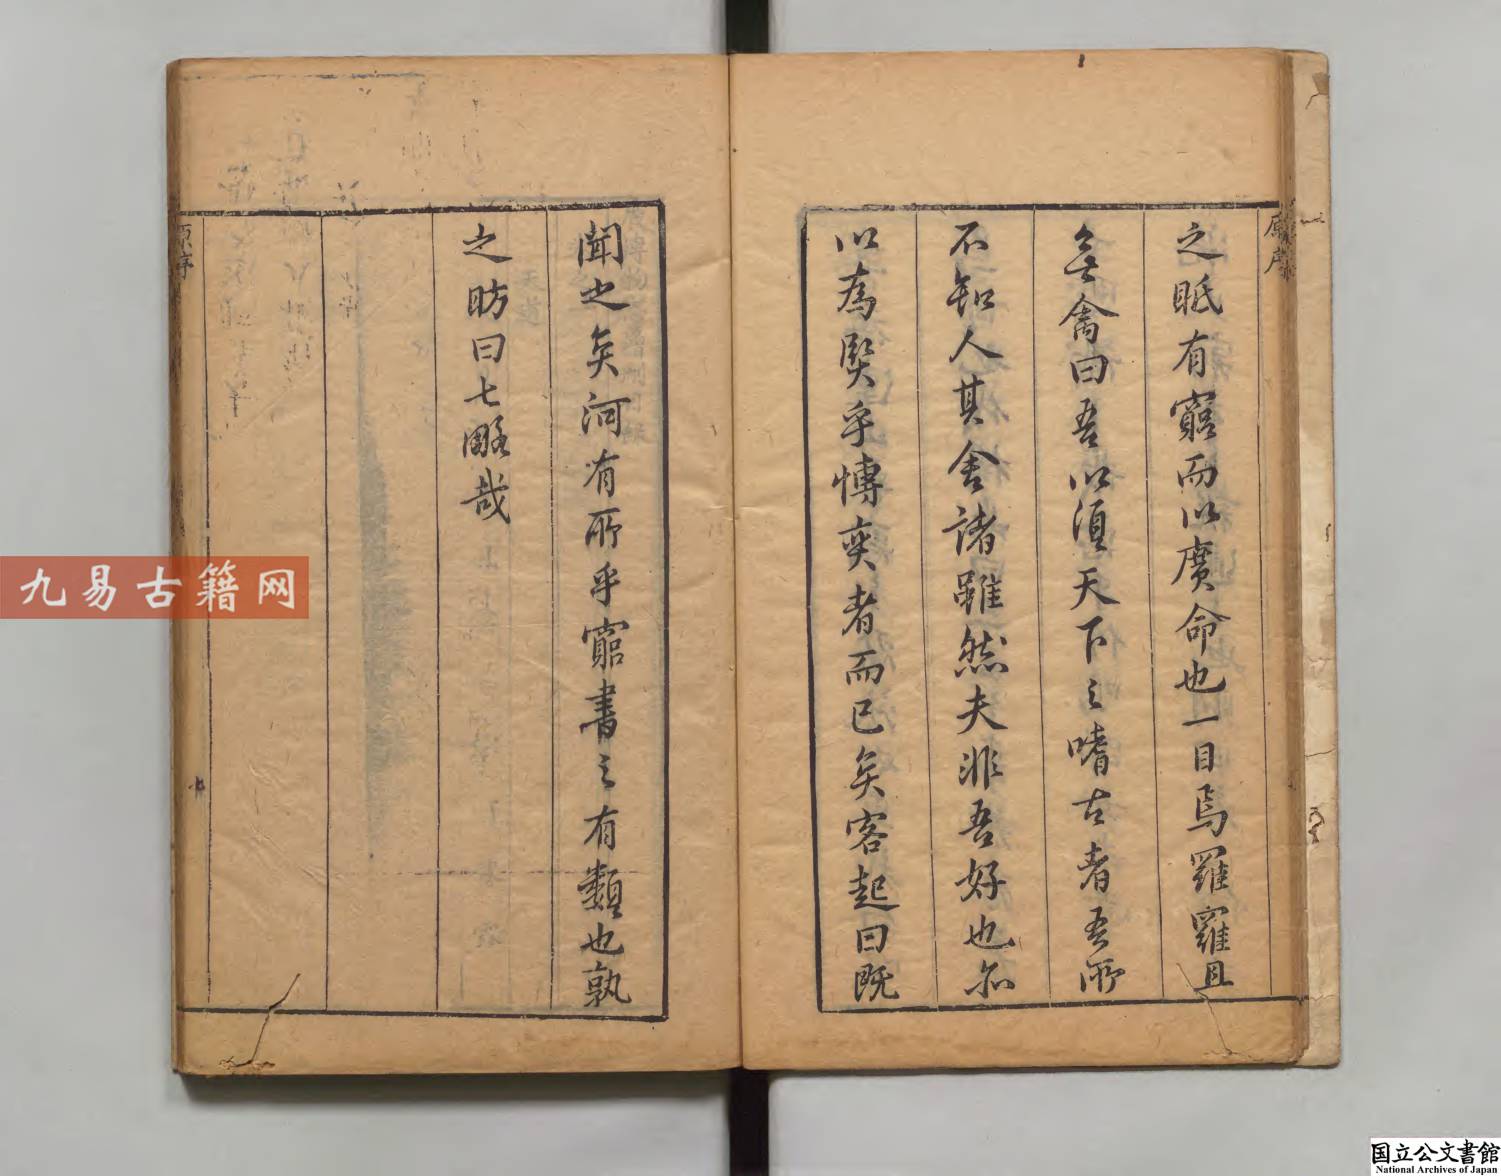 原序
之眂有窮而以廣命也一目焉羅羅且
無禽曰吾以須天下之嗜古者吾所
不知人其舍諸雖然夫非吾好也尔
以為賢乎博奕者而已矣客起曰既
聞之矣河有所乎窮書之有類也孰
之昉曰七略哉
原序
九易古籍网
国立公文書館
National Archives of Japan